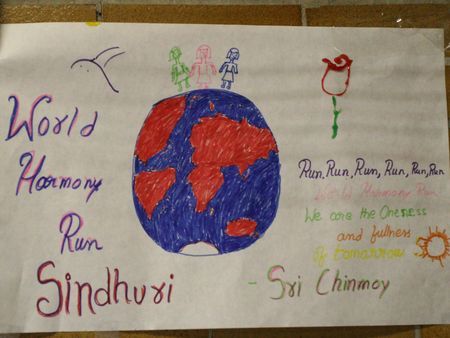 World
Harmony
Run
Sindhuri
Run, Run, Run, Run, Run, Run
World Harmony Run
We are the Oneness
and fulness
of tomorrow
- Sri Chinmoy